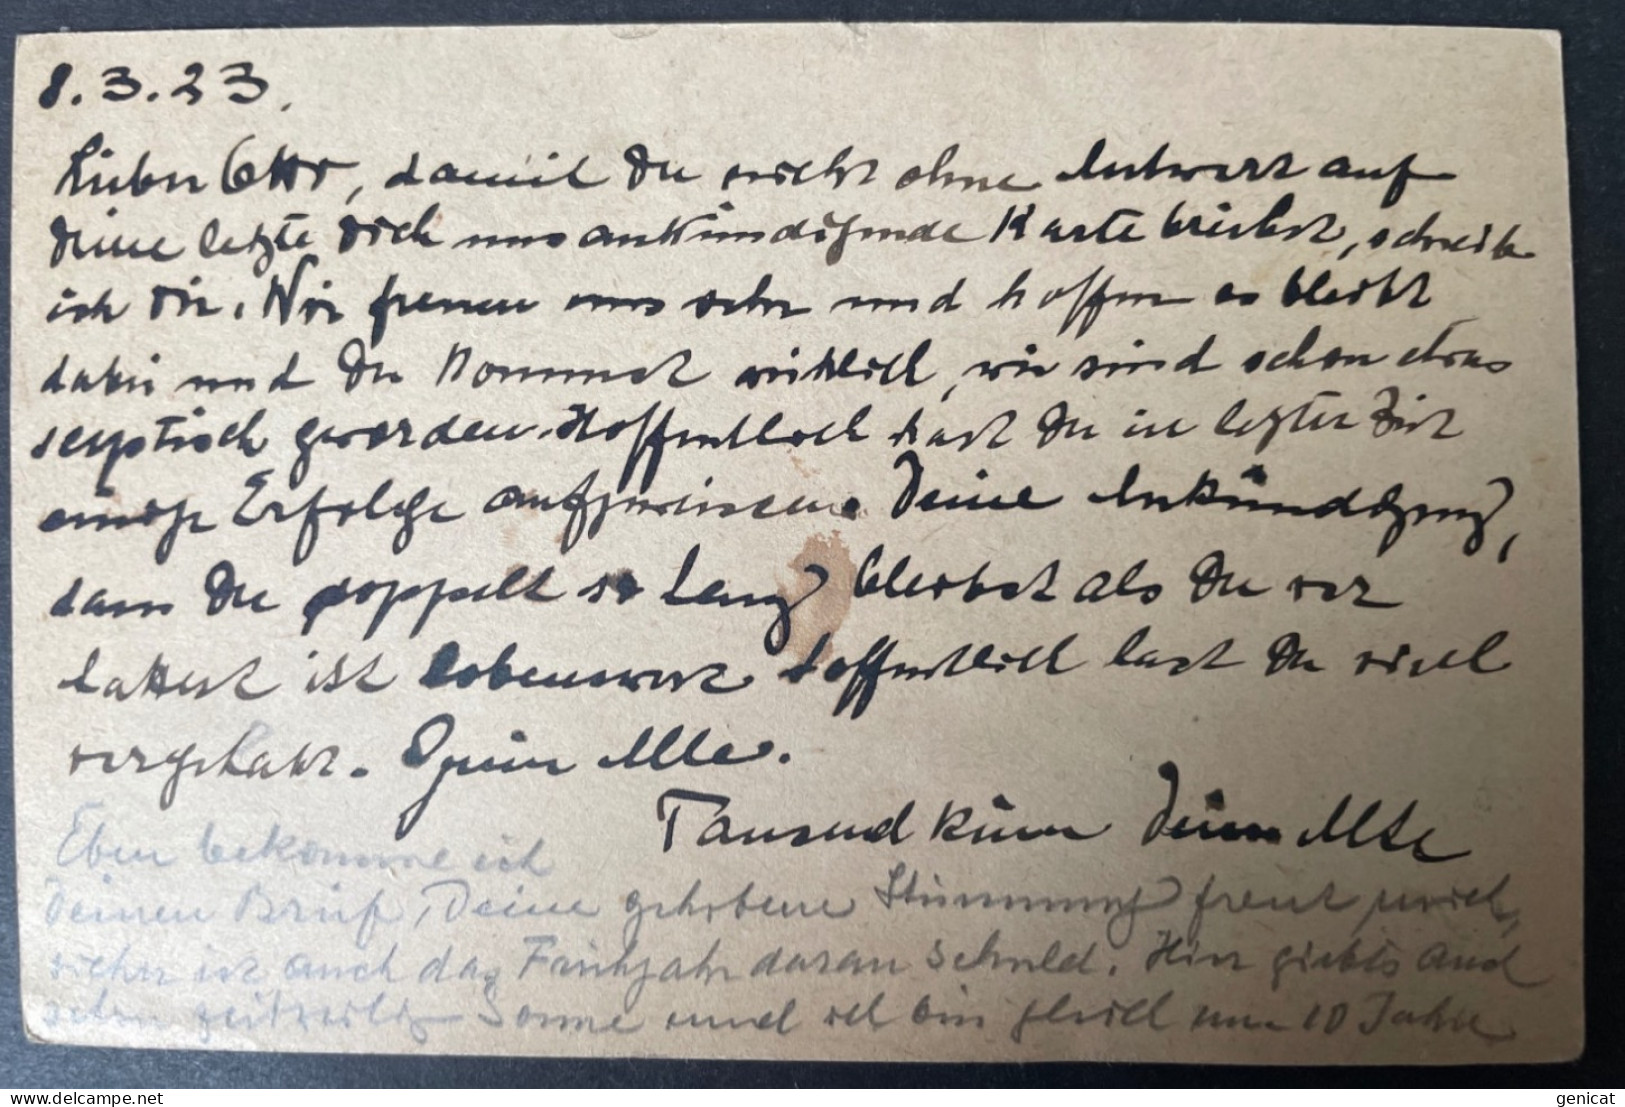 8.3.23.
Lieber Otto, damit Du nicht ohne Antwort auf
Deine letzte Dich uns ankündigende Karte bleibst, schreibe
ich Dir. Wir freuen uns sehr und hoffen es bleibt
dabei und Du kommst wirklich, wir sind schon etwas
sceptisch geworden. Hoffentlich hast Du in letzter Zeit
einige Erfolge aufzuweisen. Deine Ankündigung,
dass Du doppelt so lang bleibst als Du vor
hattest ist lobenswert hoffentlich hast Du nicht
vorgehabt. Alle.
Tausend Deine Alte
Eben bekomme ich
Deinen Brief, Deine gehobene Stimmung freut mich,
sicher ist auch das Frühjahr daran schuld. Hier giebts auch
schon zeitweilig Sonne und ich bin gleich um 10 Jahre
genicat.com
genicat